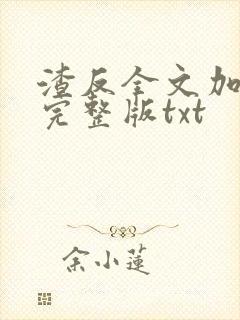 渣反全文加
完整版txt
余小莲